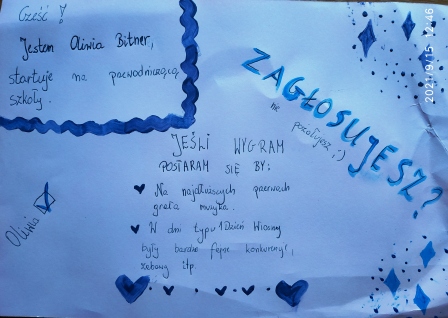 Cześć!
Jestem Oliwia Bitner,
startuje na przewodniczącą
szkoły.
ZAGŁOSUJESZ?
nie
pożałujesz ;)
JEŚLI WYGRAM
POSTARAM SIĘ BY:
Na najdłuższych przerwach
grała muzyka.
W dni typu 1 Dzień Wiosny
były bardzo fajne konkurencje,
zabawy itp.
Oliwia
2021/9/15 12:46